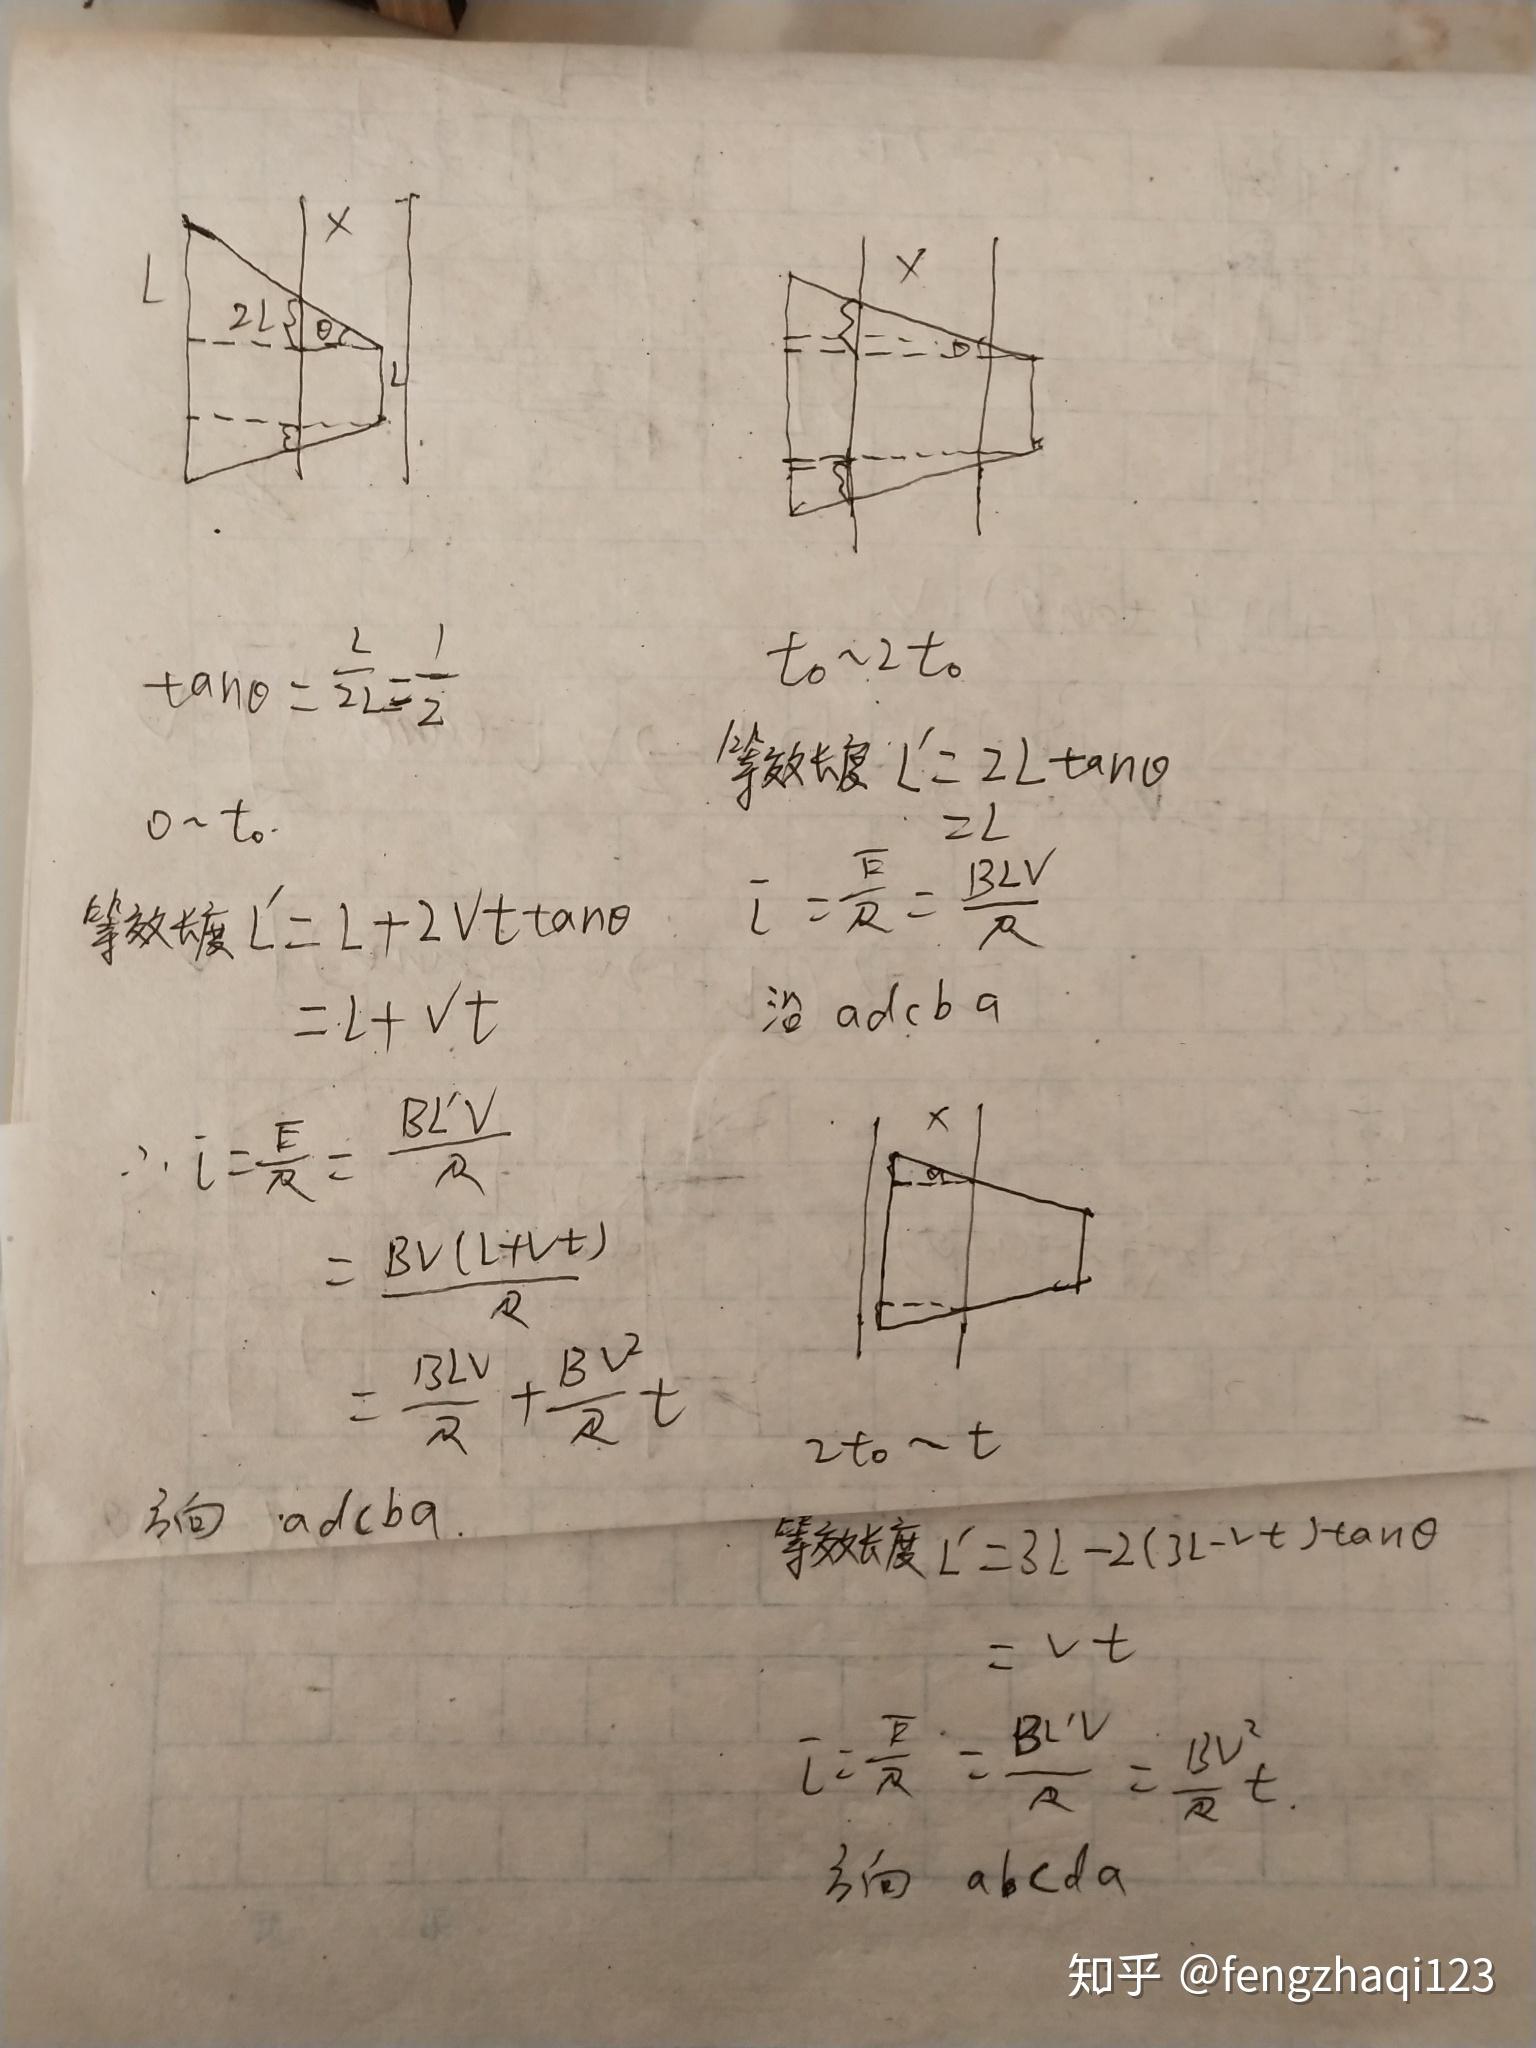 L
X
2L
θ
L
tanθ = L/2L = 1/2
0~t₀.
等效长度 L' = L + 2Vt tanθ
= L + Vt
∴ i = E/R = BL'V/R
= BV(L+Vt)/R
= BLV/R + BV²/R t
方向 adcba.
X
θ
t₀~2t₀
等效长度 L' = 2L tanθ
= L
i = E/R = BLV/R
沿 adcba
X
θ
2t₀~t
等效长度 L' = 3L - 2(3L-Vt)tanθ
= Vt
i = E/R = BL'V/R = BV²/R t.
方向 abcda
知乎 @fengzhaqi123